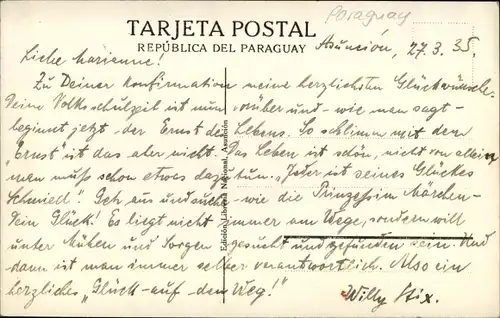 Paraguay
TARJETA POSTAL
REPÚBLICA DEL PARAGUAY
Asunción, 27.3.35.
Liebe Marianne!
Zu Deiner Konfirmation meine herzlichsten Glückwünsche.
Deine Volksschulzeit ist nun vorüber und - wie man sagt -
beginnt jetzt der Ernst des Lebens. So schlimm mit dem
"Ernst" ist das aber nicht. Das Leben ist schön, nicht von allein
man muß schon etwas dazu tun. "Jeder ist seines Glückes
Schmied"! Geh aus und suche - wie die Prinzessin im Märchen -
Dein Glück! Es liegt nicht immer am Wege, sondern will
unter Mühen und Sorgen gesucht und gefunden sein. Und
dann ist man immer selber verantwortlich. Also ein
herzliches "Glück - auf - den Weg!"
Willy Stix.
Edición Librería Nacional, Asunción